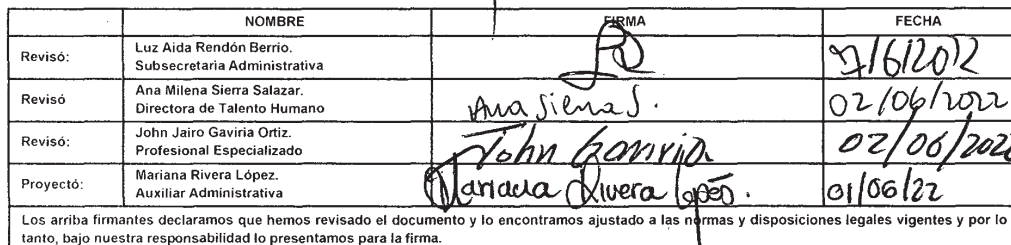 NOMBRE FIRMA FECHA
Revisó: Luz Aida Rendón Berrío.
Subsecretaria Administrativa
7/6/2022
Revisó Ana Milena Sierra Salazar.
Directora de Talento Humano
Ana Sierra S. 02/06/2022
Revisó: John Jairo Gaviria Ortiz.
Profesional Especializado
John Gaviria 02/06/2022
Proyectó: Mariana Rivera López.
Auxiliar Administrativa
Mariana Rivera López. 01/06/22
Los arriba firmantes declaramos que hemos revisado el documento y lo encontramos ajustado a las normas y disposiciones legales vigentes y por lo
tanto, bajo nuestra responsabilidad lo presentamos para la firma.